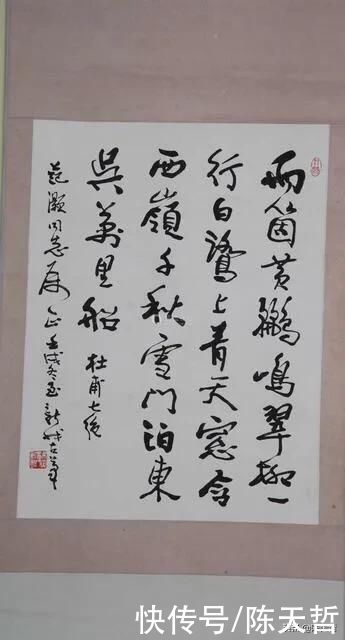 兩箇黄鸝鳴翠柳一
行白鷺上青天窓含
西嶺千秋雪門泊東
吳萬里船 杜甫七絕
范灝同志属正 壬戌冬至
快传号/陈天哲